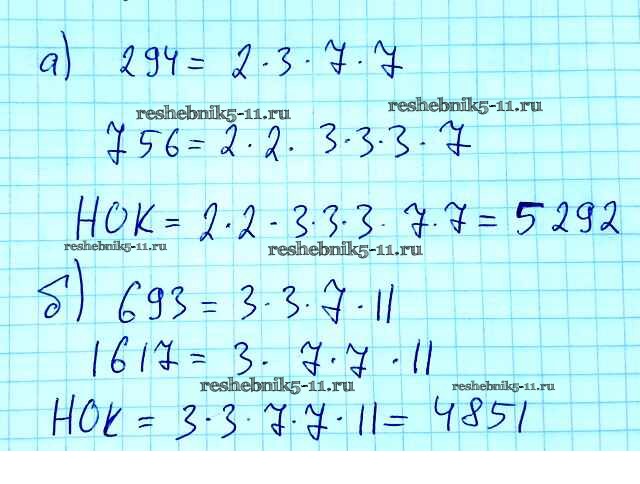 а) 294 = 2 · 3 · 7 · 7
reshebnik5-11.ru reshebnik5-11.ru
756 = 2 · 2 · 3 · 3 · 3 · 7
НОК = 2 · 2 · 3 · 3 · 3 · 7 · 7 = 5292
reshebnik5-11.ru reshebnik5-11.ru
б) 693 = 3 · 3 · 7 · 11
1617 = 3 · 7 · 7 · 11
reshebnik5-11.ru reshebnik5-11.ru
НОК = 3 · 3 · 7 · 7 · 11 = 4851